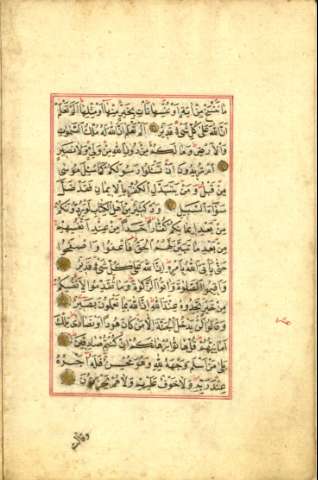 ما ننسخ من اية او ننسها نات بخير منها او مثلها الم تعلم
ان الله على كل شئ قدير الم تعلم ان الله له ملك السموات
والارض وما لكم من دون الله من ولي ولا نصير
ام تريدون ان تسئلوا رسولكم كما سئل موسى
من قبل ومن يتبدل الكفر بالايمان فقد ضل
سواء السبيل ود كثير من اهل الكتاب لو يردونكم
من بعد ايمانكم كفارا حسدا من عند انفسهم
من بعد ما تبين لهم الحق فاعفوا واصفحوا
حتى ياتي الله بامره ان الله على كل شئ قدير
واقيموا الصلوة واتوا الزكوة وما تقدموا لانفسكم
من خير تجدوه عند الله ان الله بما تعملون بصير
وقالوا لن يدخل الجنة الا من كان هودا او نصارى تلك
امانيهم قل هاتوا برهانكم ان كنتم صادقين
بلى من اسلم وجهه لله وهو محسن فله اجره
عند ربه ولا خوف عليهم ولا هم يحزنون
وقالت